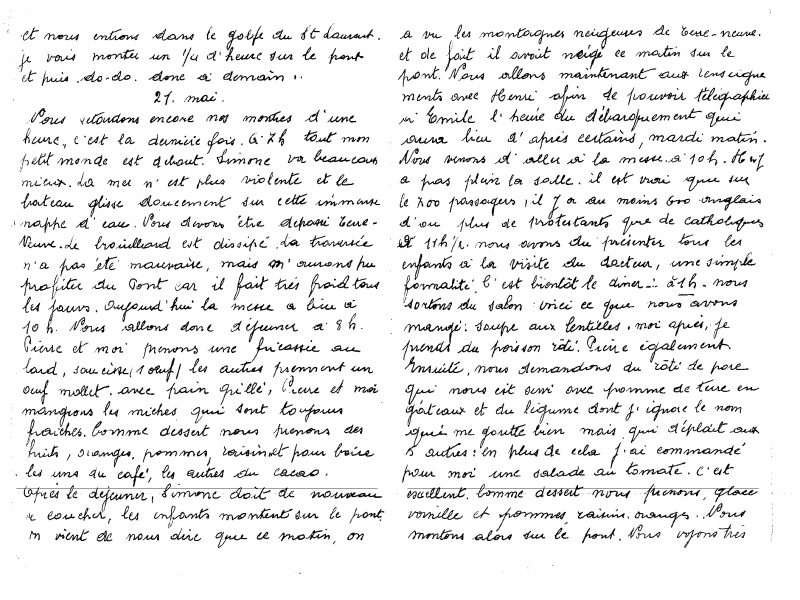 et nous entrons dans le golfe du St Laurent.
je vais monter un 1/4 d'heure sur le pont
et puis do-do. donc à demain..
21. mai.
Nous retardons encore nos montres d'une
heure, c'est la dernière fois. à 7h tout mon
petit monde est debout. Simone va beaucoup
mieux. La mer n'est plus violente et le
bateau glisse doucement sur cette immense
nappe d'eau. Nous devons être dépassé Terre-
Neuve. Le brouillard est dissipé. La traversée
n'a pas été mauvaise, mais n'aurons pu
profiter du Pont car il fait très froid tous
les jours. Aujourd'hui la messe a lieu à
10h. Nous allons donc déjeuner à 8h.
Pierre et moi prenons une fricassée au
lard, saucisse, 1 oeuf/ les autres prennent un
oeuf mollet. avec pain grillé, Pierre et moi
mangeons les miches qui sont toujours
fraîches. Comme dessert nous prenons des
fruits, oranges, pommes, raisin et pour boire
les uns du café, les autres du cacao.
Après le déjeuner, Simone doit de nouveau
se coucher, les enfants montent sur le pont
on vient de nous dire que ce matin, on
a vu les montagnes neigeuses de Terre-neuve.
et de fait il avait neigé ce matin sur le
pont. Nous allons maintenant aux renseigne
ments avec Henri afin de pouvoir télégraphier
à Emile l'heure du débarquement qui
aura lieu d'après certains, mardi matin.
Nous venons d'aller à la messe à 10h. Il n'y
a pas plein la salle. il est vrai que sur
le 700 passagers, il y a au moins 600 anglais
d'ou plus de protestants que de catholiques
à 11h/2. nous avons du présenter tous les
enfants à la visite du docteur, une simple
formalité. C'est bientôt le diner à 1h. nous
sortons du salon voici ce que nous avons
mangé: soupe aux lentilles. moi après, je
prends du poisson rôti. Pierre également.
Ensuite, nous demandons du rôti de porc
qui nous est servi avec pomme de terre en
gâteaux et du légume dont j'ignore le nom
qui me goutte bien mais qui déplait aux
5 autres: en plus de cela j'ai commandé
pour moi une salade au tomate. C'est
excellent. Comme dessert nous prenons, glace
vanille et pommes, raisin. oranges. Nous
montons alors sur le pont. Nous voyons très